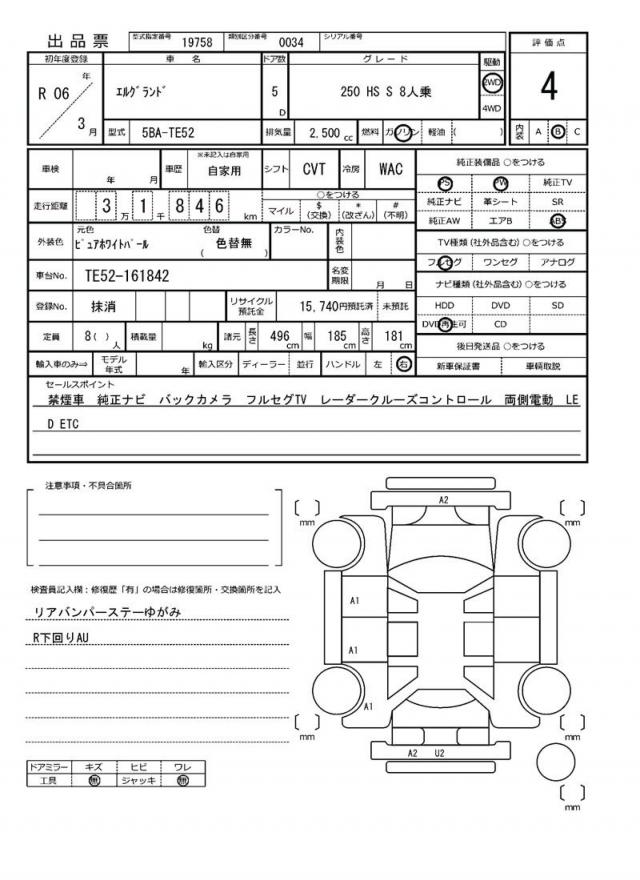 出品票 型式指定番号 19758 類別区分番号 0034 シリアル番号
評価点
4
初年度登録 車名 ドア数 グレード 駆動
R 06 年 3 月 ｴﾙｸﾞﾗﾝﾄﾞ 5 D 250 HS S 8人乗 2WD 4WD
型式 5BA-TE52 排気量 2,500 cc 燃料 ガソリン 軽油 ( ) 内装 A B C
車検 年 月 車歴 ※未記入は自家用 自家用 シフト CVT 冷房 WAC
走行距離 3 万 1 千 8 4 6 km ○をつける
マイル $ (交換) * (改ざん) # (不明)
外装色 元色 ﾋﾟｭｱﾎﾜｲﾄﾊﾟｰﾙ 色替 ( 色替無 ) カラーNo. 内装色
車台No. TE52-161842 名変期限 月 日
登録No. 抹消 リサイクル預託金 15,740円預託済 未預託
定員 8( ) 人 積載量 kg 諸元 長さ 496 cm 幅 185 cm 高さ 181 cm
輸入車のみ⇒ モデル年式 年 輸入区分 ディーラー 並行 ハンドル 左 右
純正装備品 ○をつける
PS PW 純正TV
純正ナビ 革シート SR
純正AW エアB ABS
TV種類 (社外品含む) ○をつける
フルセグ ワンセグ アナログ
ナビ種類 (社外品含む) ○をつける
HDD DVD SD
DVD再生可 CD
後日発送品 ○をつける
新車保証書 車輌取説
セールスポイント
禁煙車 純正ナビ バックカメラ フルセグTV レーダークルーズコントロール 両側電動 LE
D ETC
注意事項・不具合箇所
検査員記入欄：修復歴「有」の場合は修復箇所・交換箇所を記入
リアバンパーステーゆがみ
R下回りAU
ドアミラー キズ ヒビ ワレ
工具 無 ジャッキ 無
A2
mm
mm
A1
A1
A1
mm
mm
A2 U2
mm